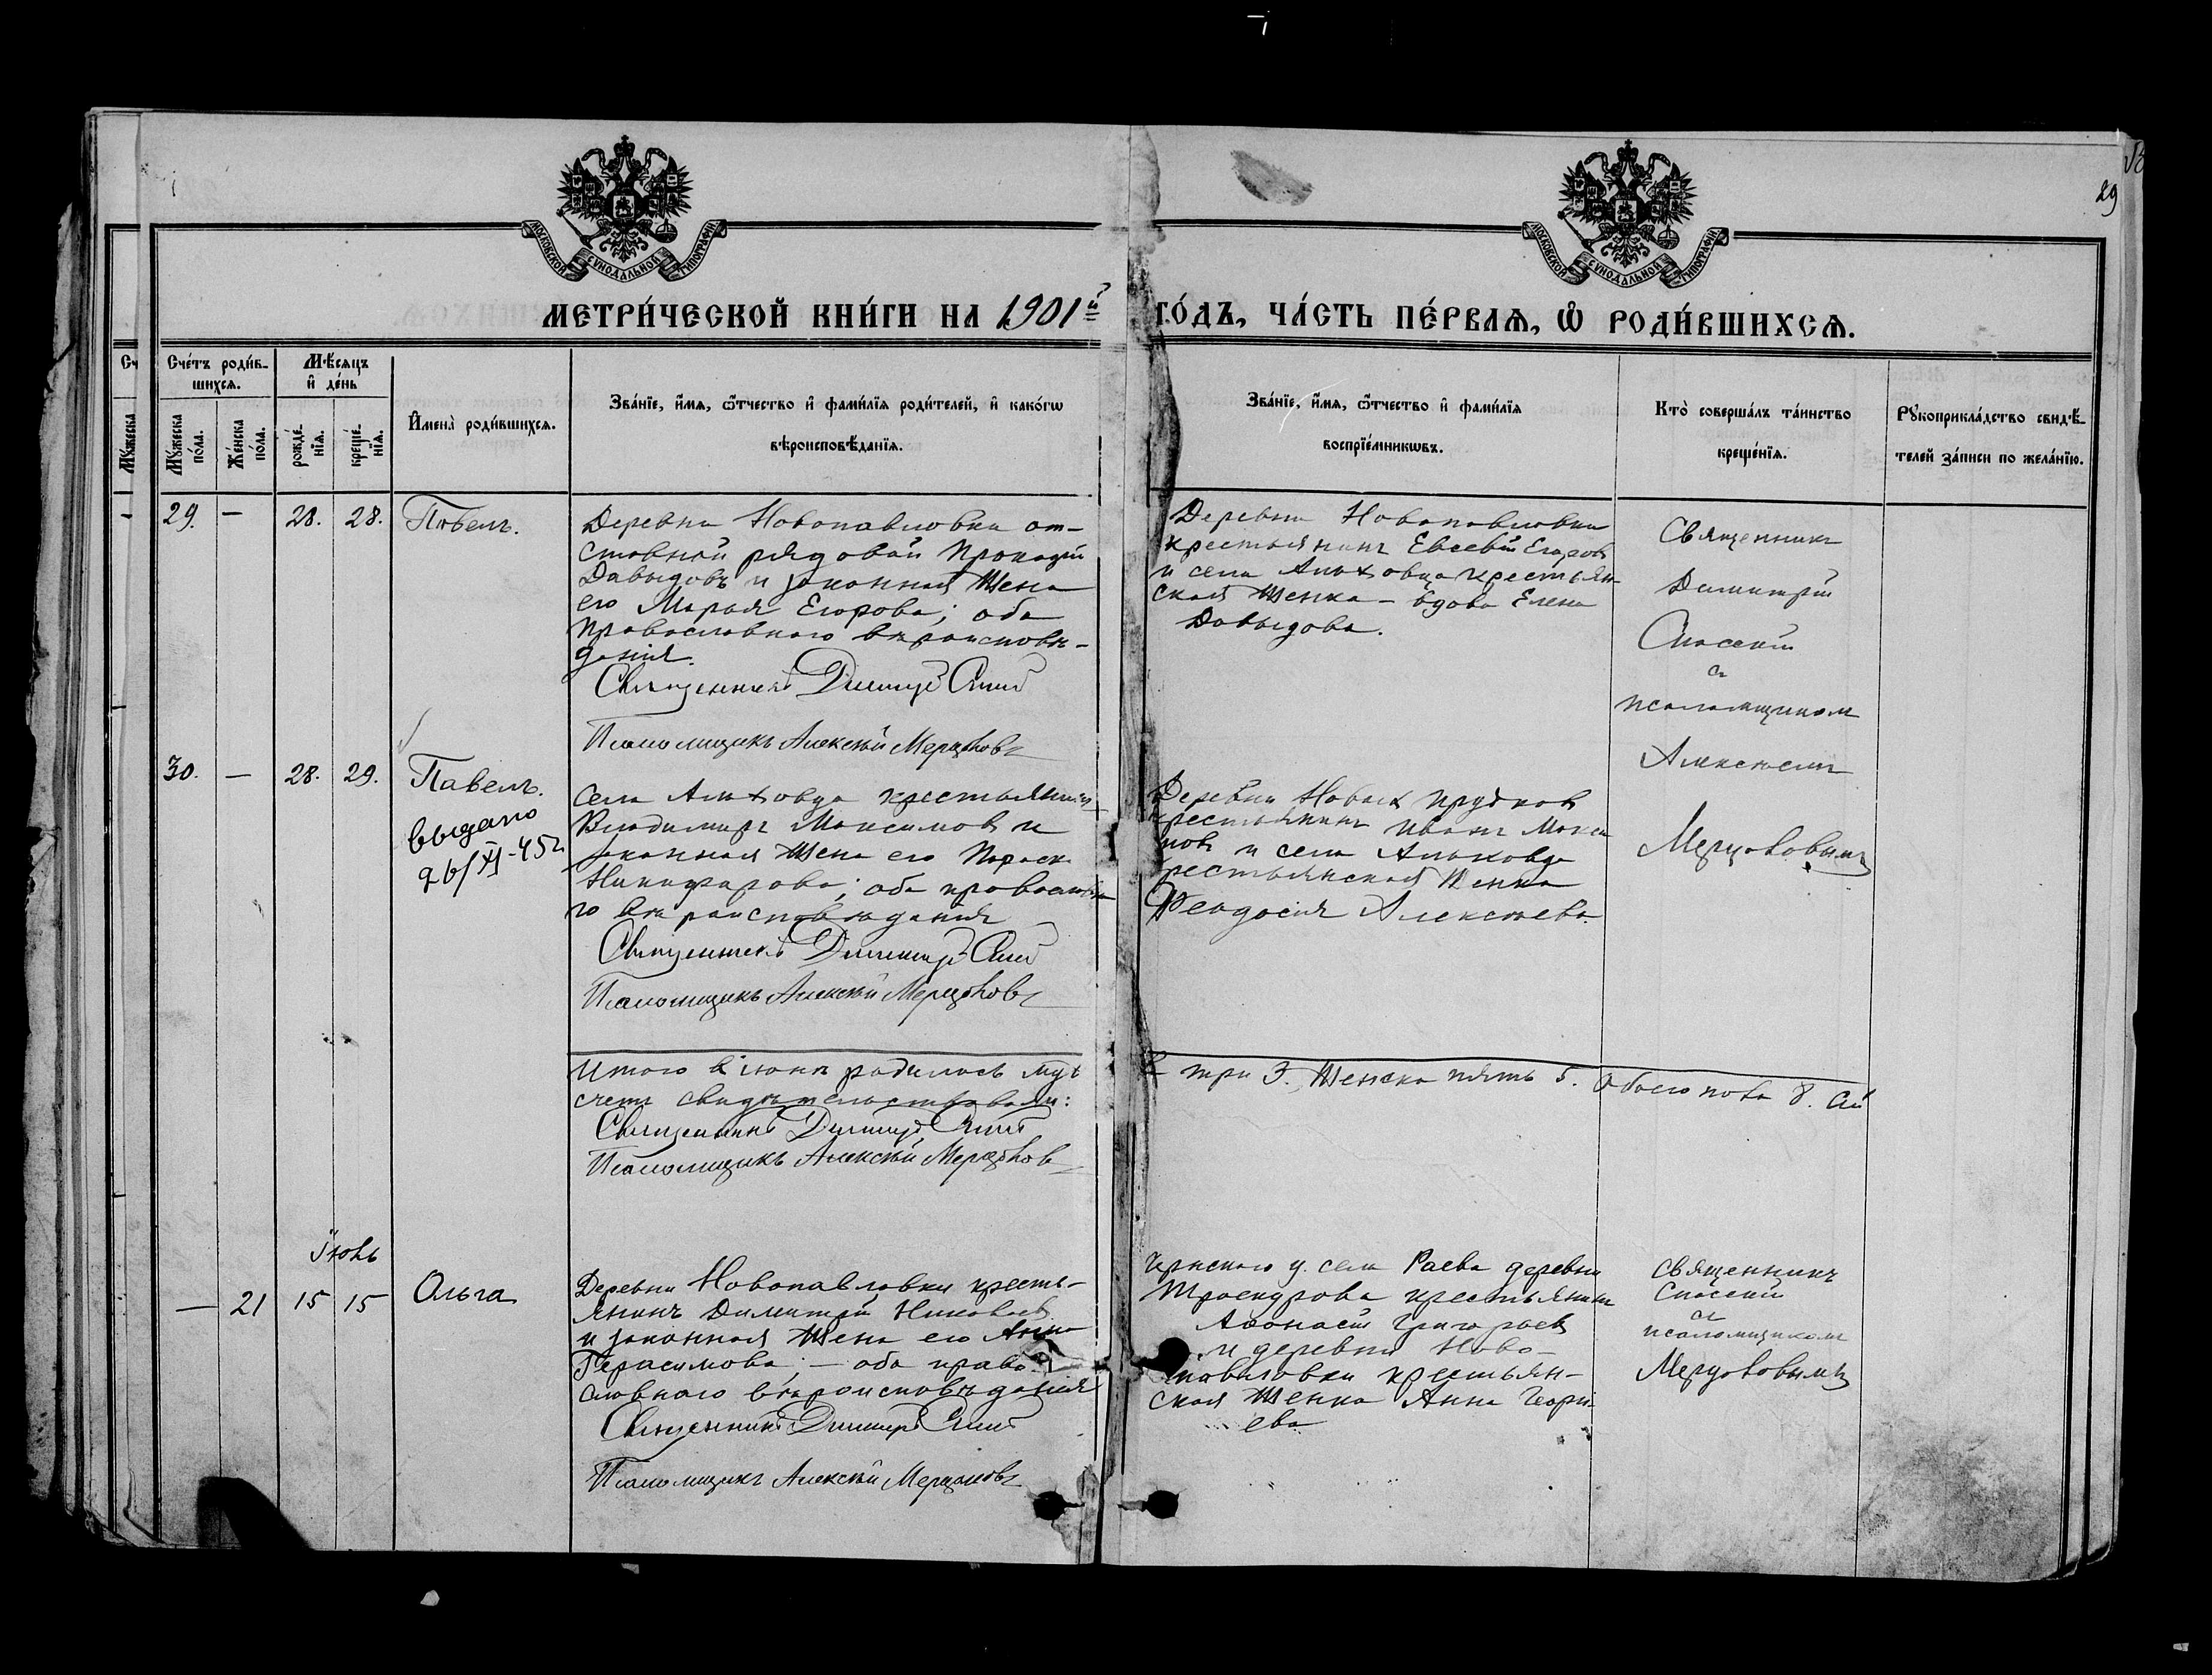 29
МОСКОВСКОЙ СУНОДАЛЬНОЙ ТИПОГРАФІИ
МОСКОВСКОЙ СУНОДАЛЬНОЙ ТИПОГРАФІИ
МЕТРИ́ЧЕСКОЙ КНИ́ГИ НА 1901й
ГО́ДЪ, ЧА́СТЬ ПЕ́РВАѦ, Ѽ РОДИ́ВШИХСѦ.
Сче́тъ роди́в-
шихсѧ.
Мꙋ́жеска
по́ла.
Же́нска
по́ла.
Мѣ́сѧцъ
и҆ де́нь
рожде́-
нїѧ.
креще́-
нїѧ.
И҆мена̀ роди́вшихсѧ.
Зва́нїе, и҆́мѧ, ѻ҆́тчество и҆ фами́лїѧ роди́телей, и҆ како́гѡ
вѣроисповѣ́данїѧ.
Зва́нїе, и҆́мѧ, ѻ҆́тчество и҆ фами́лїѧ
воспрїе́мникѡвъ.
Кто̀ соверша́лъ та́инство
креще́нїѧ.
Рꙋкоприкла́дство свидѣ́-
телей за́писи по жела́нїю.
29. — 28. 28. Павелъ.
Деревни Новопавловки от-
ставной рядовой Прокопій
Давыдовъ и законная жена
его Марья Егорова; оба
православнаго вѣроисповѣ-
данія.
Священникъ Димитрій
Псаломщикъ Алексѣй Мерцаловъ
Деревни Новопавловки
крестьянинъ Евсевій Егоровъ
и села крестьян-
ская женка - вдова Елена
Давыдова.
Священникъ
Димитрій
Спасскій
съ
псаломщикомъ
Алексѣемъ
Мерцаловымъ
30. — 28. 29. Павелъ.
выдано
26/XI-45г
Села крестьянинъ
Владимиръ Максимовъ и
законная жена его Параск.
Никифорова; оба православна
го вѣроисповѣданія
Священникъ Димитрій
Псаломщикъ Алексѣй Мерцаловъ
Деревни Новыхъ Прудковъ
крестьянинъ Иванъ Макси
мовъ и села
крестьянская женка
Феодосія Алексѣева.
Итого в родилось муж
ск три 3. Женска пять 5. Обоего пола 8. Сій
счетъ свидѣтельствовали:
Священникъ Димитрій
Псаломщикъ Алексѣй Мерцаловъ
Іюнь
— 21 15 15 Ольга
Деревни Новопавловки кресть-
янинъ Димитрій Николаевъ
и законная жена его Анна
Герасимова; — оба право-
славнаго вѣроисповѣданія
Священникъ Димитрій
Псаломщикъ Алексѣй Мерцаловъ
у. села Раева деревни
Троекурова крестьянинъ
Аѳонасій Григорьевъ
и деревни Ново-
павловки крестьян-
ская женка Анна Георгі
ева
Священникъ
Спасскій
съ
псаломщикомъ
Мерцаловымъ